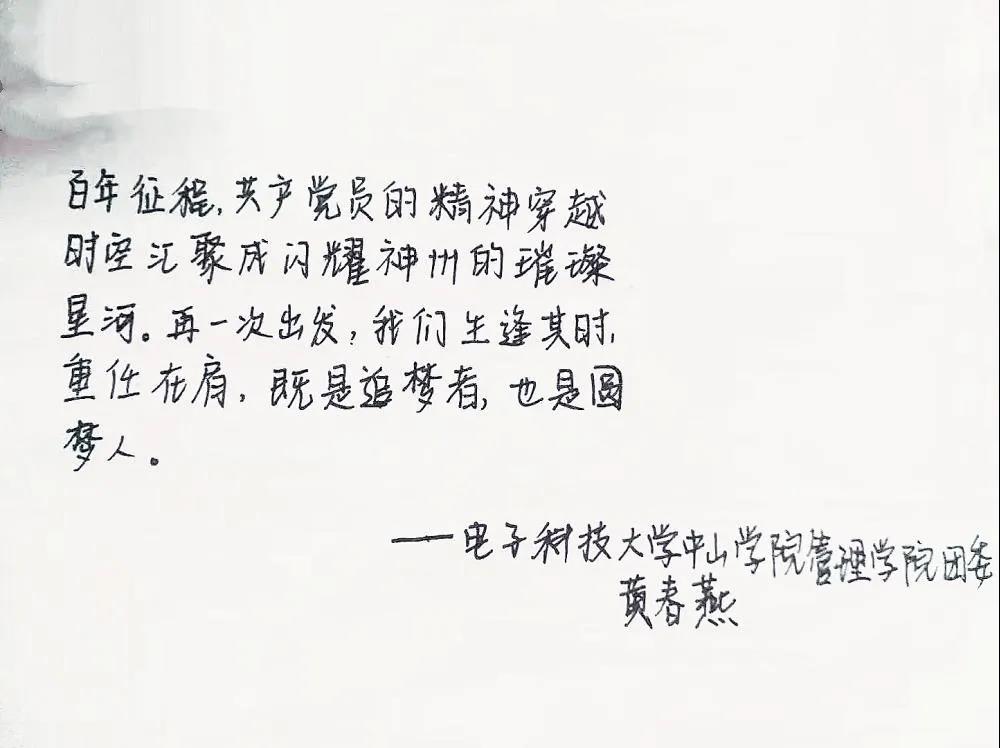 百年征程,共产党员的精神穿越
时空汇聚成闪耀神州的璀璨
星河。再一次出发,我们生逢其时,
重任在肩,既是追梦者,也是圆
梦人。
——电子科技大学中山学院管理学院团委
黄春燕